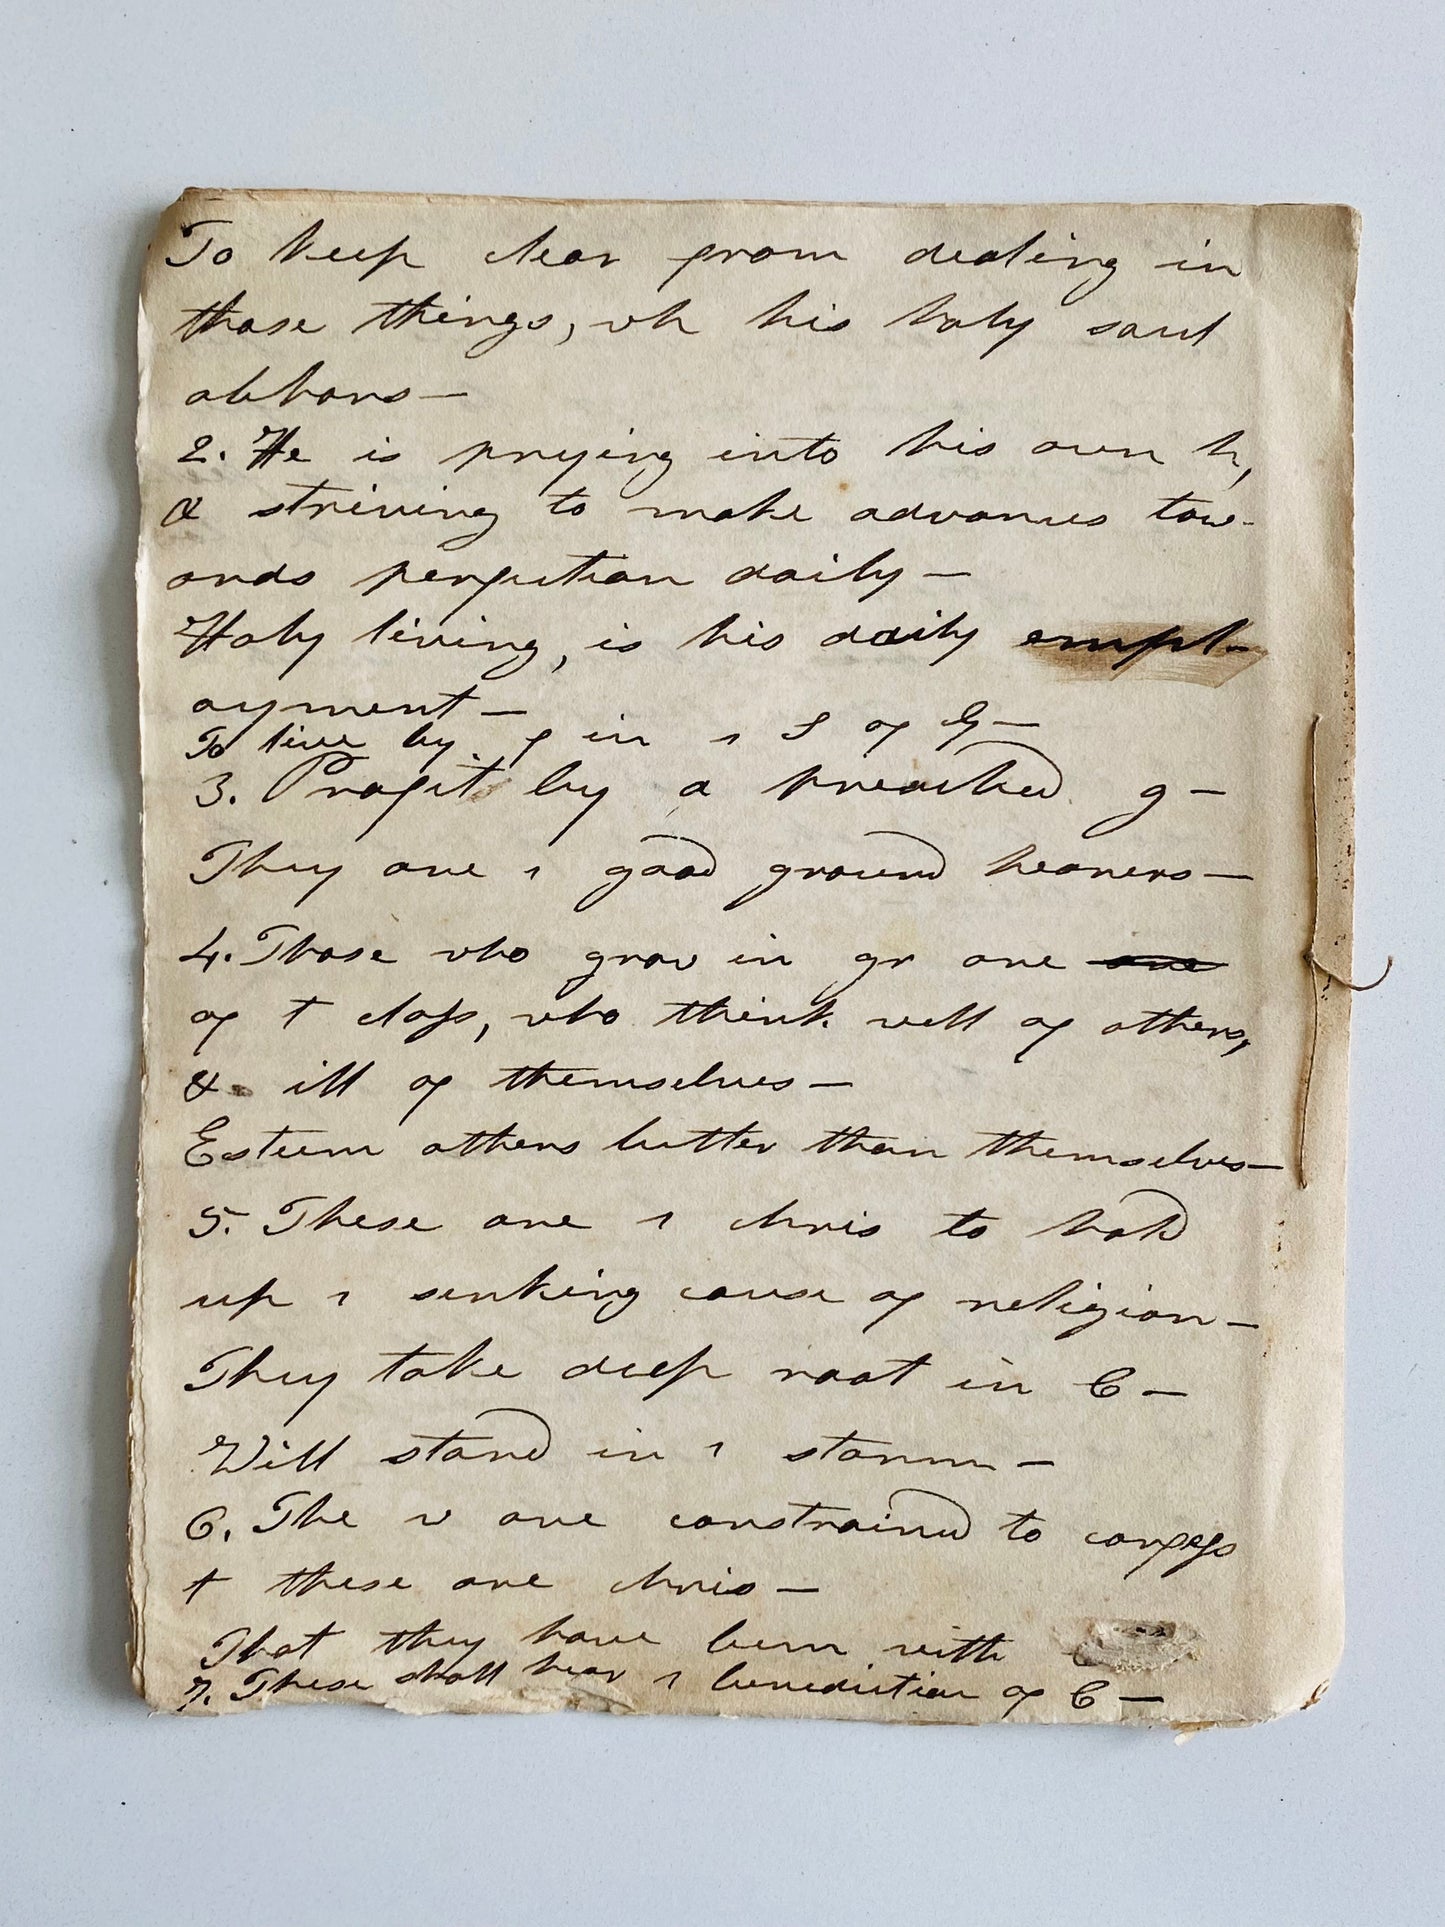 To keep clear from dealing in
those things, wh his holy soul
abhors—
2. He is prying into his own h,
& striving to make advances tow-
ards perfection daily—
Holy living, is his daily empl-
oyment—
To live by f in 1 S of G—
3. Profit by a preached g—
They are 1 good ground hearers—
4. Those who grow in gr are are
of t class, who think well of others,
& ill of themselves—
Esteem others better than themselves—
5. These are 1 chris to hold
up 1 sinking cause of religion—
They take deep root in C—
Will stand in 1 storm—
6. The w are constrained to confess
t these are chris—
That they have been with
7. These shall hear 1 benediction of C—